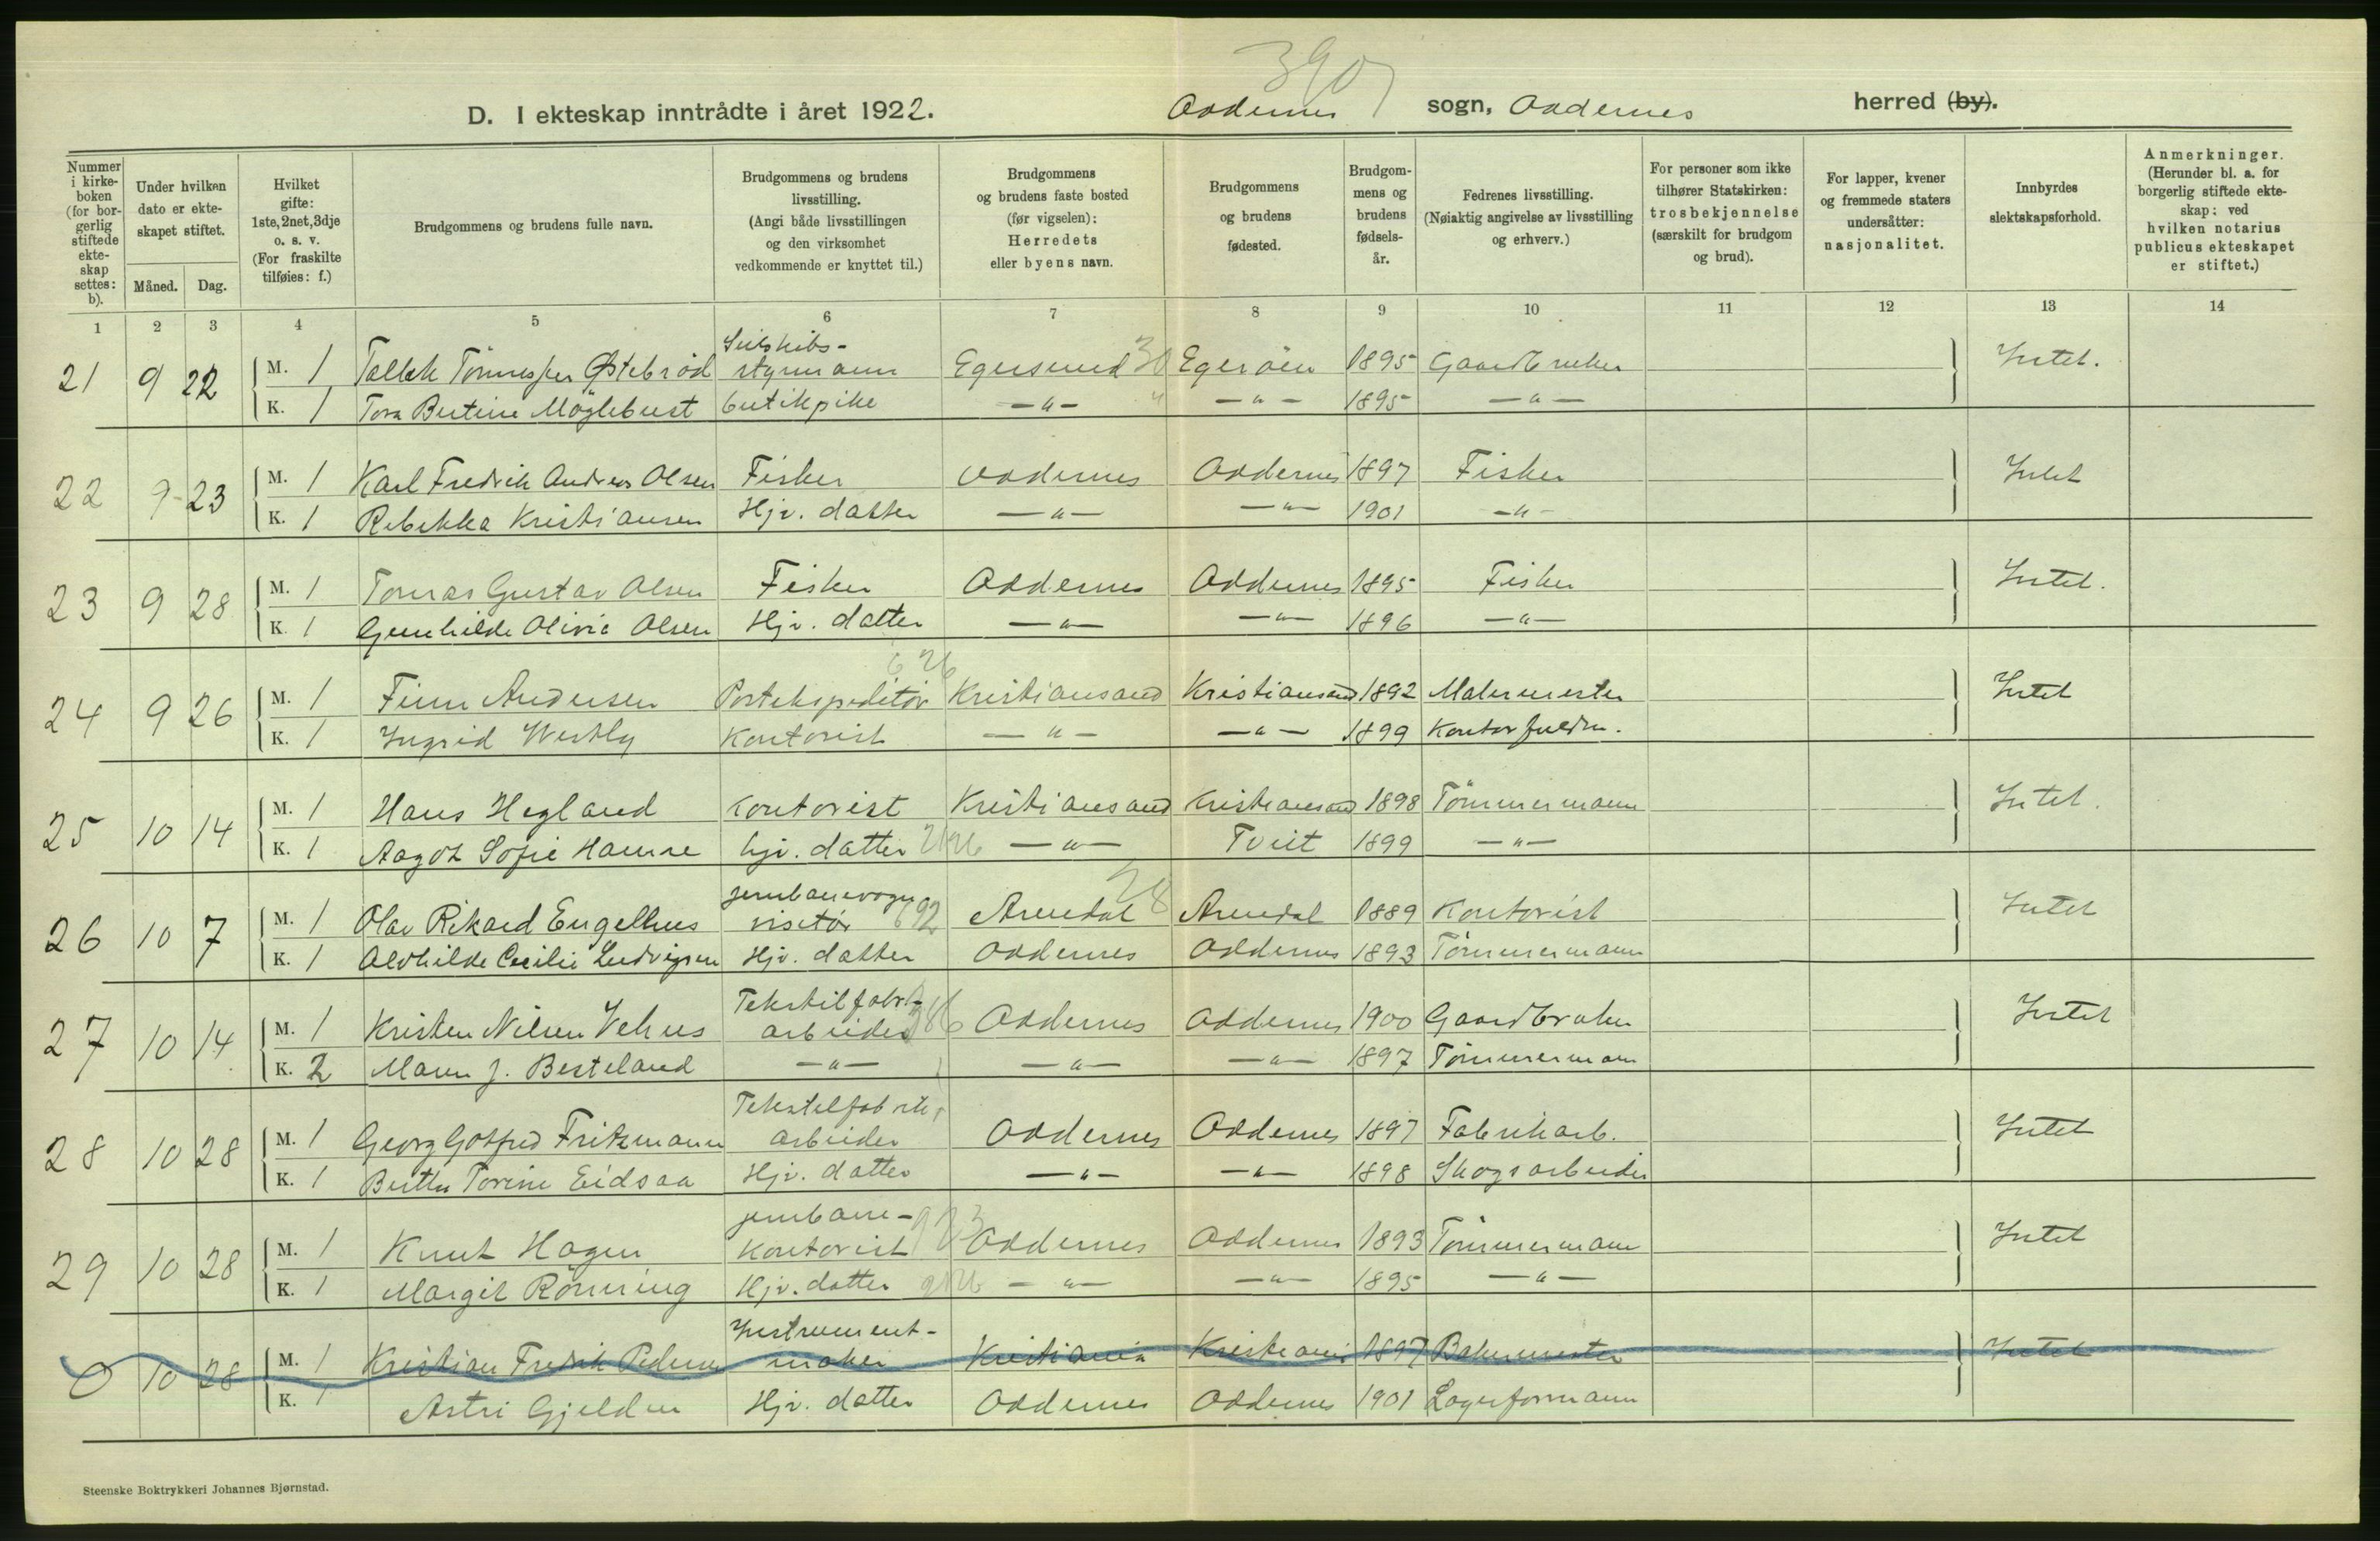 390
D. I ekteskap inntrådte i året 1922. Oddernes sogn, Oddernes herred (by).
Nummer i kirke-boken (for bor-gerlig stiftede ekte-skap settes: b).
Under hvilken dato er ekte-skapet stiftet.
Måned. Dag.
Hvilket gifte: 1ste, 2net, 3dje o. s. v. (For fraskilte tilføies: f.)
Brudgommens og brudens fulle navn.
Brudgommens og brudens livsstilling. (Angi både livsstillingen og den virksomhet vedkommende er knyttet til.)
Brudgommens og brudens faste bosted (før vigselen): Herredets eller byens navn.
Brudgommens og brudens fødested.
Brudgom-mens og brudens fødsels-år.
Fedrenes livsstilling. (Nøiaktig angivelse av livsstilling og erhverv.)
For personer som ikke tilhører Statskirken: trosbekjennelse (særskilt for brudgom og brud).
For lapper, kvener og fremmede staters undersåtter: nasjonalitet.
Innbyrdes slektskapsforhold.
Anmerkninger. (Herunder bl. a. for borgerlig stiftede ekte-skap: ved hvilken notarius publicus ekteskapet er stiftet.)
1 2 3 4 5 6 7 8 9 10 11 12 13 14
21 9 22 M. 1 Østebrød styrmann Egersund 30 Egerøen 1895 Gaardbruker Intet.
K. 1 Tora Bertine Møglebust butikpike —"— —"— 1895 —"—
22 9 23 M. 1 Karl Fredrik Andreas Olsen Fisker Oddernes Oddernes 1897 Fisker Intet
K. 1 Rebekka Kristiansen Hjv. datter —"— —"— 1901 —"—
23 9 28 M. 1 Tomas Gustav Olsen Fisker Oddernes Oddernes 1895 Fisker Intet.
K. 1 Gunhilde Olivie Olsen Hjv. datter —"— —"— 1896 —"—
24 9 26 M. 1 Finn Andersen Postekspeditør Kristiansand Kristiansand 1892 Malermester Intet
K. 1 Ingrid Westly Kontorist —"— —"— 1899 Kontorfuldm.
25 10 14 M. 1 Hans Hegland Kontorist Kristiansand Kristiansand 1898 Tømmermann Intet.
K. 1 Aagot Sofie Hamre hjv. datter —"— Tveit 1899 —"—
26 10 7 M. 1 Olav Rikard Engelhus jernbanevogn visitør 692 Arendal 28 Arendal 1889 Kontorist Intet
K. 1 Alvhilde Cecilie Ludvigsen Hjv. datter Oddernes Oddernes 1893 Tømmermann
27 10 14 M. 1 Kristen Nilsen Vehus Tekstilfabr. arbeider Oddernes Oddernes 1900 Gaardbruker Intet
K. 2 Maren J. Besteland —"— —"— —"— 1897 Tømmermann
28 10 28 M. 1 Georg Gotfred Fritzmann Tekstilfabrik arbeider Oddernes Oddernes 1897 Fabrikarb. Intet
K. 1 Berthe Torine Eidsaa Hjv. datter —"— —"— 1898 Skogsarbeider
29 10 28 M. 1 Knut Hagen jernbane- kontorist Oddernes Oddernes 1893 Tømmermann Intet
K. 1 Margit Rønning Hjv. datter —"— —"— 1895 —"—
0 10 28 M. 1 Kristian Fredrik Pedersen Instrument- maker Kristiania Kristiania 1897 Bakermester Intet
K. 1 Astri Gjelden Hjv. datter Oddernes Oddernes 1901 Lagerformann
Steenske Boktrykkeri Johannes Bjørnstad.